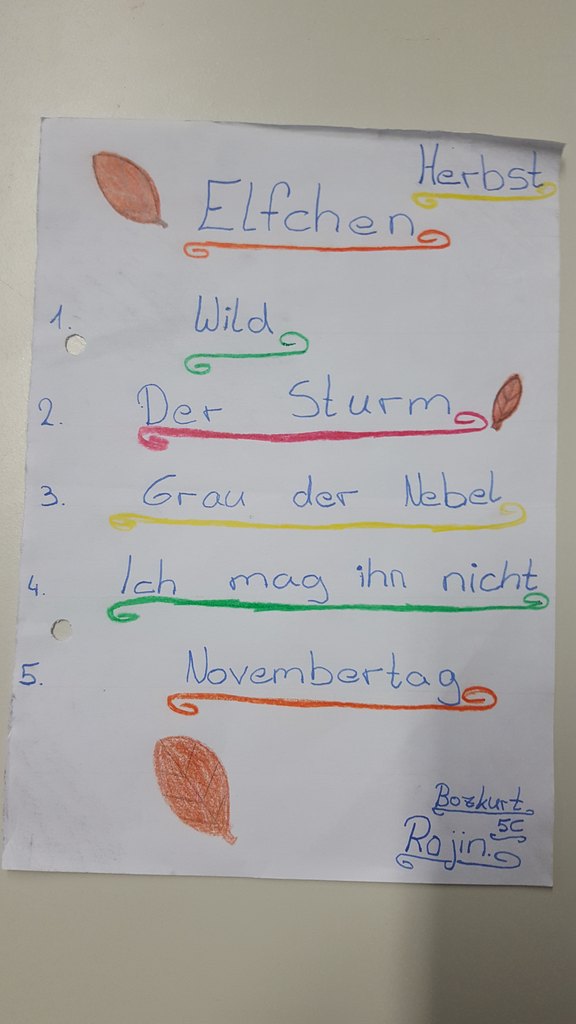 Herbst
Elfchen
1. Wild
2. Der Sturm
3. Grau der Nebel
4. Ich mag ihn nicht
5. Novembertag
Bozkurt
5C
Rojin.